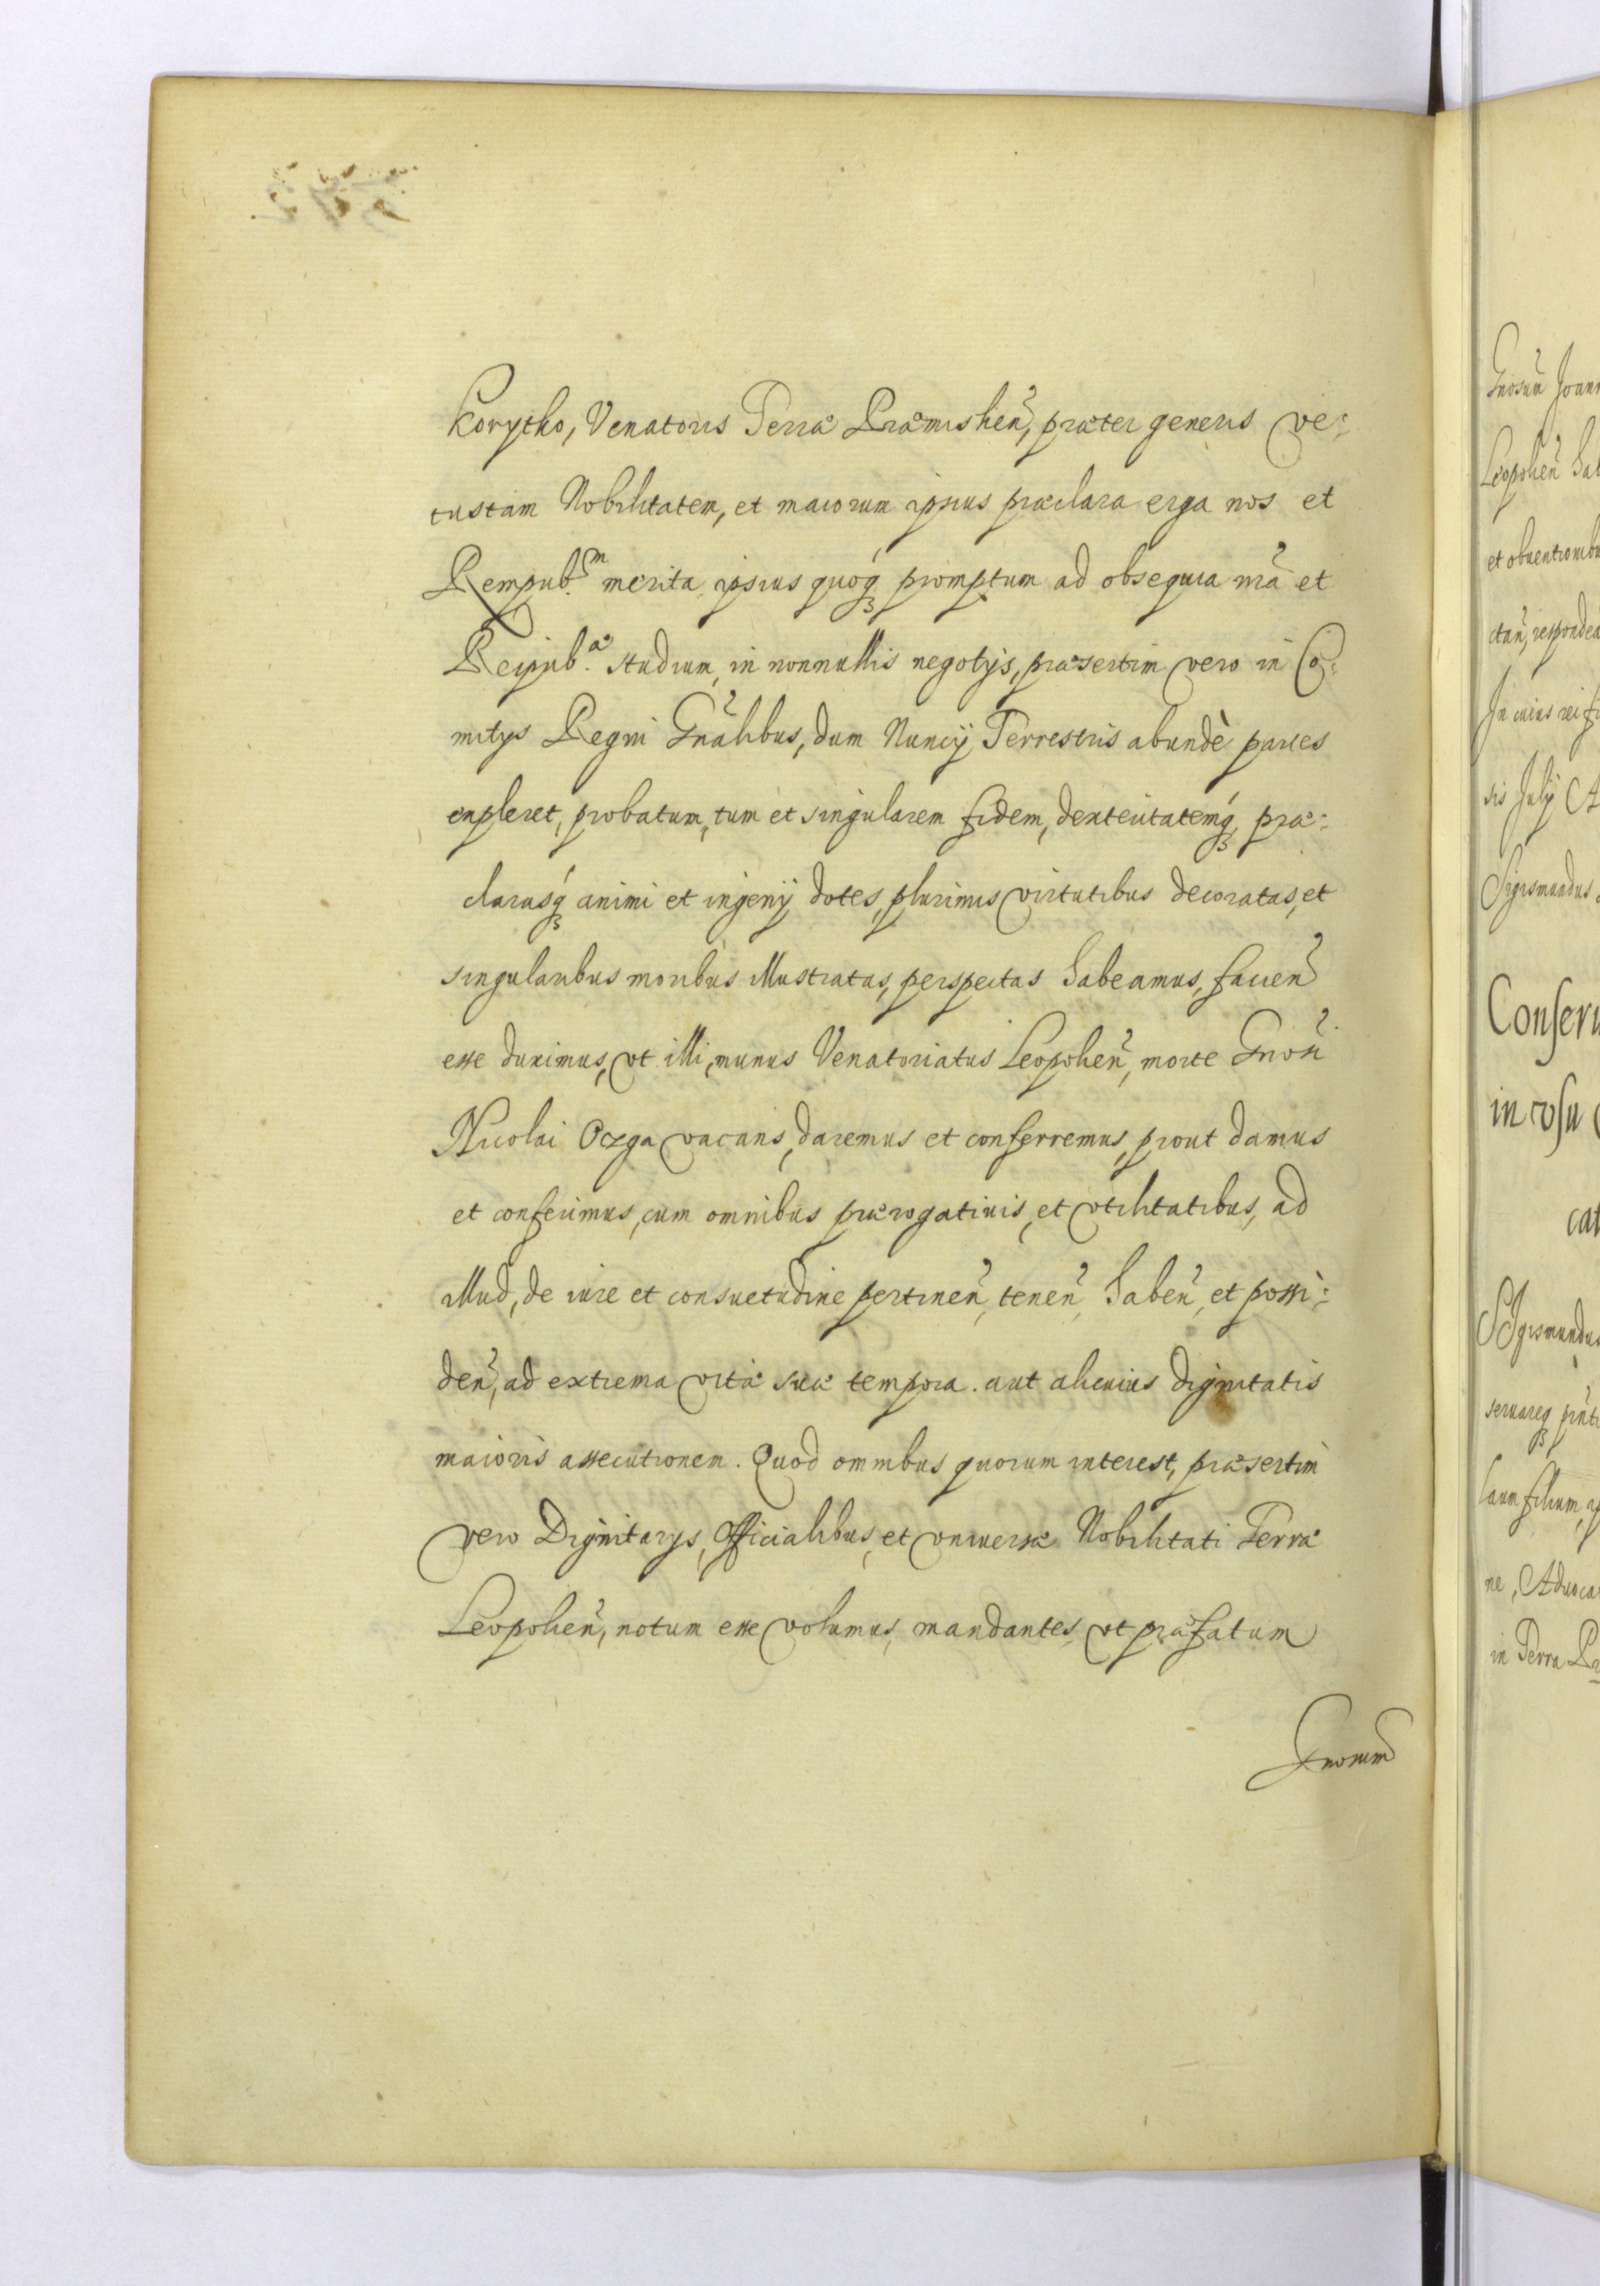 Korytko, Venatoris Terræ Præmislien̄, præter generis ve:
tustam Nobilitatem, et maiorum ipsius præclara erga nos et
Rempub.m merita, ipsius quoq3 promptum ad obsequia nr̄a et
Reipub.æ studium, in nonnullis negotys, præsertim vero in Co:
mitys Regni Gn̄alibus, dum Nuncij Terrestris abundè partes
expleret, probatum, tum et singularem fidem, dexteritatemq3, præ:
clarasq3 animi et ingenij dotes, plurimis virtutibus decoratas, et
singularibus moribus illustratas, perspectas habeamus, facien̄
esse duximus, vt illi, munus Venatoriatus Leopolien̄, morte Gn̄osi
Nicolai Ozga vacans, daremus et conferremus, prout damus
et conferimus, cum omnibus prærogatiuis, et vtilitatibus, ad
illud, de iure et consuetudine pertinen̄, tenen̄, haben̄, et possi:
den̄, ad extrema vitæ suæ tempora. aut alicuius dignitatis
maioris assecutionem. Quod omnibus quorum interest, præsertim
vero Dignitarys, Officialibus, et vniuersæ Nobilitati Terræ
Leopolien̄, notum esse volumus, mandantes, vt præfatum
Gnosum
Gnosum Joan
Leopolien̄ hab
et obuentionibu
ctan̄, respondea
In cuius rei fi
sis July A
Sigismundus
Conseru
in vsu
cat
SIgismundus
seruareq3
laum filium,
ne, Aduoca
in Terra Pr